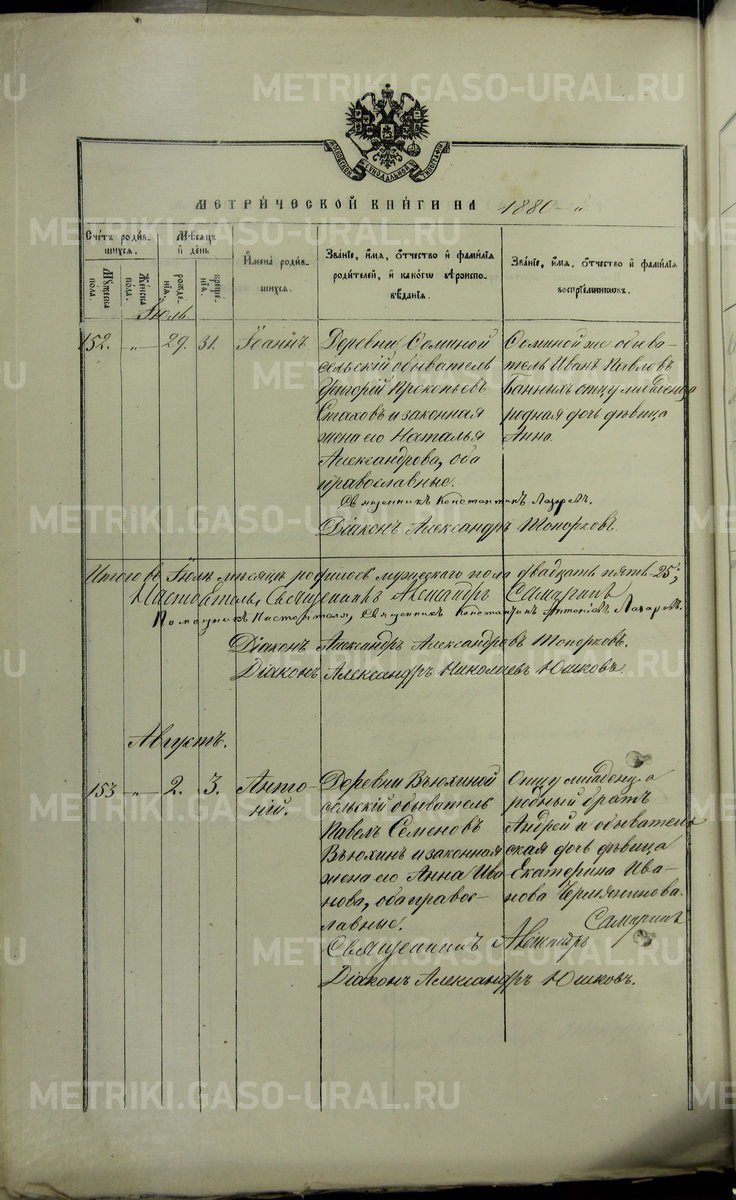 METRIKI.GASO-URAL.RU
МОСКОВСКОЙ СУНОДАЛЬНОЙ ТИПОГРАФІИ
МЕТРИ́ЧЕСКОЙ КНИ́ГИ НА 1880 „
Сче́тъ роди́в-
шихся.
Му́жеска пола.
Же́нска пола.
М҃ѣсяцъ
и҆ де́нь
рожде́-
нїя.
креще́-
нїя.
И҆мена̀ роди́в-
шихся.
Зва́нїе, и҆́мя, о҆́тчество и҆ фами́лїя
роди́телей, и҆ какѡ́гѡ вѣроиспо-
вѣ́данїя.
Зва́нїе, и҆́мя, о҆́тчество и҆ фами́лїя
воспрїе́мниковъ.
Іюль
152. „ 29. 31. Іоаннъ
Деревни Соминой
сельскій обыватель
Григорій Прокопьевъ
и законная
жена его Наталья
Александрова, оба
православные.
Соминой же обыва-
тель Иванъ Павловъ
Банныхъ отцу младенца
родная дочь дѣвица
Анна.
Священникъ Константинъ Лазаревъ.
Діаконъ Александръ Топорковъ
Итого въ Іюлѣ мѣсяцѣ родилось мужескаго пола двадцать пять 25;
Настоятель, Священникъ Александръ Самаринъ
Помощникъ Настоятеля, Священникъ Константинъ Антоніевъ Лазаревъ.
Діаконъ Александръ Александровъ Топорковъ.
Діаконъ Александръ Николаевъ Юшковъ.
Августъ.
153 „ 2. 3. Анто-
ній.
Деревни Вьюхиной
сельскій обыватель
Павелъ Семеновъ
Вьюхинъ и законная
жена его Анна Ива
нова, оба правос-
лавные.
Отцу младенца
родный братъ
Андрей и обыватель
ская дочь дѣвица
Екатерина Ива-
нова
Священникъ Александръ Самаринъ
Діаконъ Александръ Юшковъ.